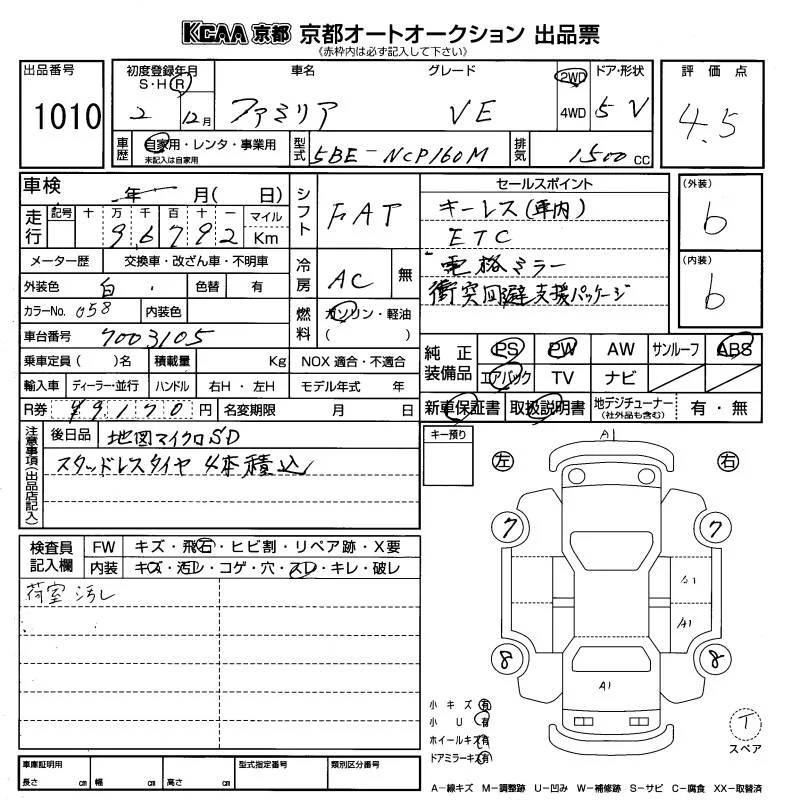 KCAA 京都 京都オートオークション 出品票
《赤枠内は必ず記入して下さい》
出品番号 1010
初度登録年月 S・H・R 2 12月
車名 ファミリア
グレード VE
2WD 4WD
ドア・形状 5 V
評価点 4.5
車歴 自家用・レンタ・事業用
未記入は自家用
型式 5BE-NCP160M
排気 1500 cc
車検 年 月( 日)
走行 記号 十 万 千 百 十 一 マイル Km
9 6 7 9 2
シフト FAT
メーター歴 交換車・改ざん車・不明車
外装色 白 色替 有
カラーNo. 058 内装色
車台番号 7003105
冷房 AC 無
燃料 ガソリン・軽油
( )
乗車定員( )名 積載量 Kg NOX 適合・不適合
輸入車 ディーラー・並行 ハンドル 右H・左H モデル年式 年
R券 円 名変期限 月 日
セールスポイント
キーレス(車内)
ETC
電格ミラー
衝突回避支援パッケージ
(外装) b
(内装) b
純正装備品 PS PW AW サンルーフ ABS
エアバック TV ナビ
新車保証書 取扱説明書 地デジチューナー (社外品も含む) 有・無
注意事項(出品店記入)
後日品 地図マイクロSD
スタッドレスタイヤ 4本積込
キー預り
検査員記入欄
FW キズ・飛石・ヒビ割・リペア跡・X要
内装 キズ・汚レ・コゲ・穴・スレ・キレ・破レ
荷室汚レ
A1
左 右
7 7
A1
8 8
A1
小キズ 有
小U 有
ホイールキズ 有
ドアミラーキズ 有
T
スペア
車庫証明用 長さ cm 幅 cm 高さ cm
型式指定番号 類別区分番号
A-線キズ M-調整跡 U-凹み W-補修跡 S-サビ C-腐食 XX-取替済